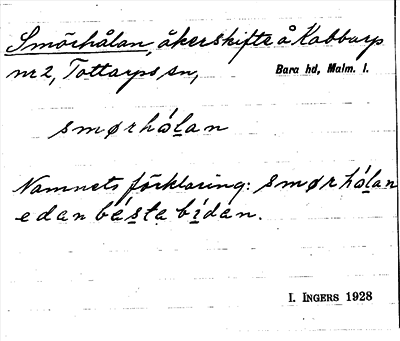 Smörhålan, åkerskifte å Kabbarp
nr 2, Tottarps sn, Bara hd, Malm. l.
smørhó̱lan
Namnets förklaring: smørhó̱lan
e dan bésta bídan.
I. INGERS 1928